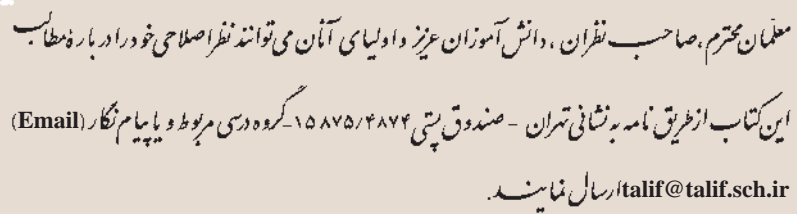 معلّمان محترم، صاحب نظران، دانش‌آموزان عزیز و اولیای آنان می‌توانند نظر اصلاحی خود را دربارهٔ مطالب
این کتاب از طریق نامه به نشانی تهران - صندوق پستی ۱۵۸۷۵/۴۸۷۴ - گروه درسی مربوط و یا پیام نگار (Email)
talif@talif.sch.ir ارسال نمایند.